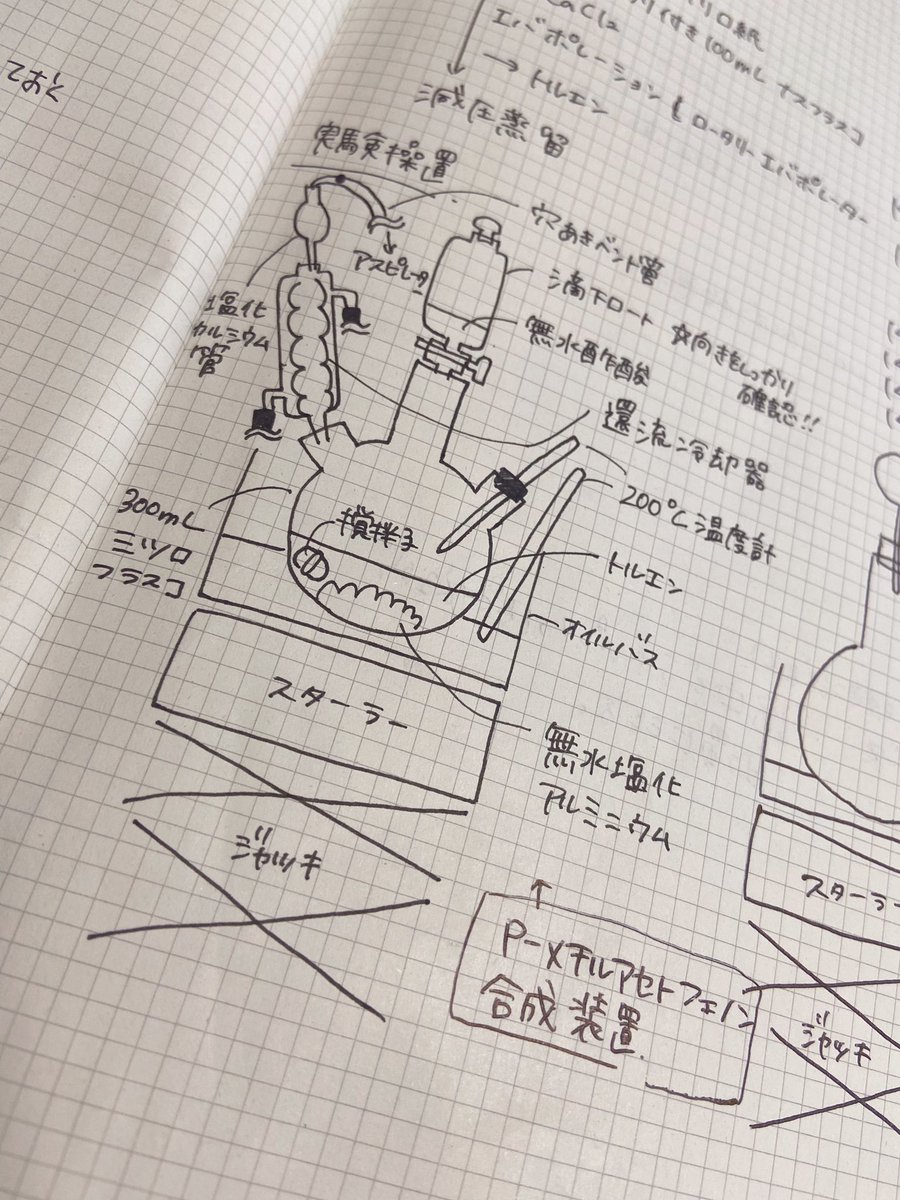 ておく
リロ紙
CaCl2
付き100mLナスフラスコ
エバポレーション
ロータリーエバポレーター
→トルエン
減圧蒸留
実験操置
穴あきベンド管
アスピレータ
滴下ロート
☆向きをしっかり
確認!!
塩化
カルシウム
管
無水酢酸
還流冷却器
200℃温度計
300mL
三ツ口
フラスコ
撹拌子
トルエン
オイルバス
スターラー
無水塩化
アルミニウム
ジャッキ
P-メチルアセトフェノン
合成装置.
スターラー
ジャッキ